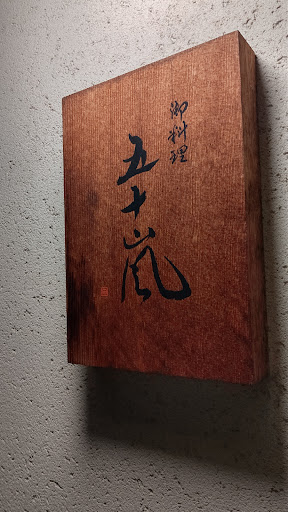 御料理
五十嵐